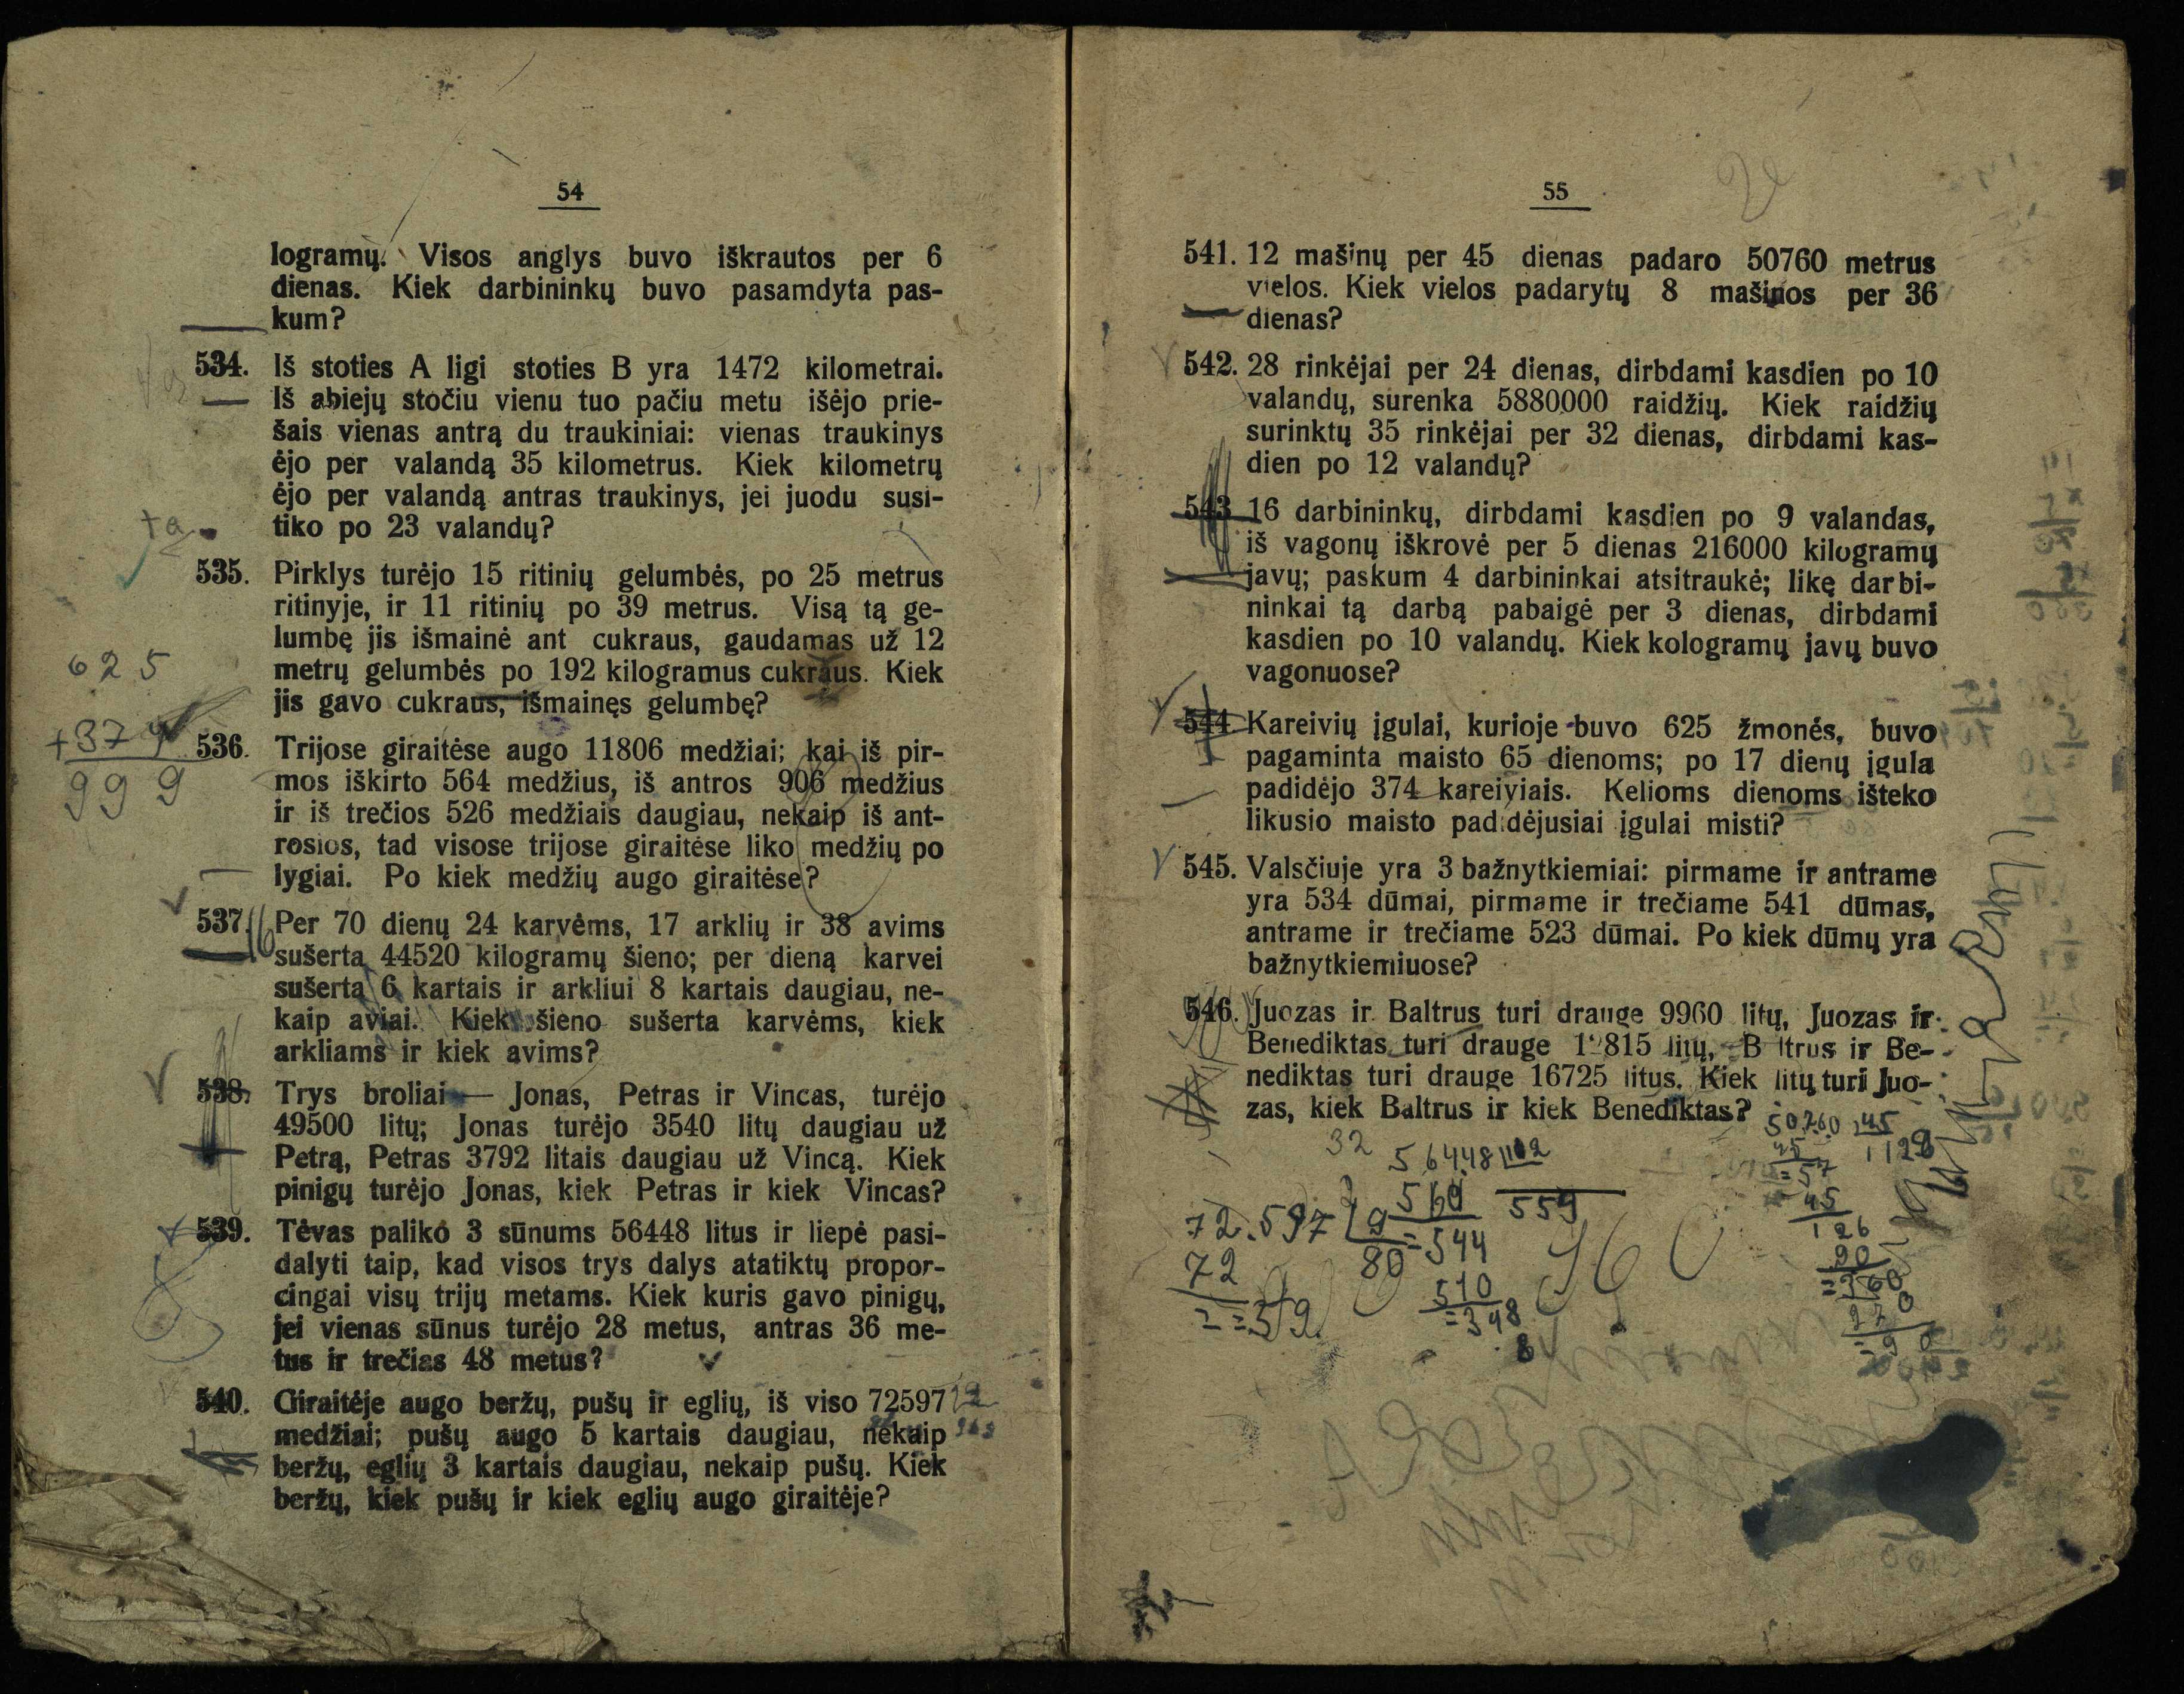 54
logramų. Visos anglys buvo iškrautos per 6
dienas. Kiek darbininkų buvo pasamdyta pas-
kum?
534. Iš stoties A ligi stoties B yra 1472 kilometrai.
Iš abiejų stočiu vienu tuo pačiu metu išėjo prie-
šais vienas antrą du traukiniai: vienas traukinys
ėjo per valandą 35 kilometrus. Kiek kilometrų
ėjo per valandą antras traukinys, jei juodu susi-
tiko po 23 valandų?
535. Pirklys turėjo 15 ritinių gelumbės, po 25 metrus
ritinyje, ir 11 ritinių po 39 metrus. Visą tą ge-
lumbę jis išmainė ant cukraus, gaudamas už 12
metrų gelumbės po 192 kilogramus cukraus. Kiek
jis gavo cukraus, išmainęs gelumbę?
625
+374
999
536. Trijose giraitėse augo 11806 medžiai; kai iš pir-
mos iškirto 564 medžius, iš antros 906 medžius
ir iš trečios 526 medžiais daugiau, nekaip iš ant-
rosios, tad visose trijose giraitėse liko medžių po
lygiai. Po kiek medžių augo giraitėse?
537. Per 70 dienų 24 karvėms, 17 arklių ir 38 avims
sušerta 44520 kilogramų šieno; per dieną karvei
sušerta 6 kartais ir arkliui 8 kartais daugiau, ne-
kaip aviai. Kiek šieno sušerta karvėms, kiek
arkliams ir kiek avims?
538. Trys broliai — Jonas, Petras ir Vincas, turėjo
49500 litų; Jonas turėjo 3540 litų daugiau už
Petrą, Petras 3792 litais daugiau už Vincą. Kiek
pinigų turėjo Jonas, kiek Petras ir kiek Vincas?
539. Tėvas paliko 3 sūnums 56448 litus ir liepė pasi-
dalyti taip, kad visos trys dalys atatiktų propor-
cingai visų trijų metams. Kiek kuris gavo pinigų,
jei vienas sūnus turėjo 28 metus, antras 36 me-
tus ir trečias 48 metus?
540. Giraitėje augo beržų, pušų ir eglių, iš viso 72597
medžiai; pušų augo 5 kartais daugiau, nekaip
beržų, eglių 3 kartais daugiau, nekaip pušų. Kiek
beržų, kiek pušų ir kiek eglių augo giraitėje?
55
541. 12 mašinų per 45 dienas padaro 50760 metrus
vielos. Kiek vielos padarytų 8 mašinos per 36
dienas?
542. 28 rinkėjai per 24 dienas, dirbdami kasdien po 10
valandų, surenka 5880000 raidžių. Kiek raidžių
surinktų 35 rinkėjai per 32 dienas, dirbdami kas-
dien po 12 valandų?
543 16 darbininkų, dirbdami kasdien po 9 valandas,
iš vagonų iškrovė per 5 dienas 216000 kilogramų
javų; paskum 4 darbininkai atsitraukė; likę darbi-
ninkai tą darbą pabaigė per 3 dienas, dirbdami
kasdien po 10 valandų. Kiek kologramų javų buvo
vagonuose?
544. Kareivių įgulai, kurioje buvo 625 žmonės, buvo
pagaminta maisto 65 dienoms; po 17 dienų įgula
padidėjo 374 kareiviais. Kelioms dienoms išteko
likusio maisto padidėjusiai įgulai misti?
545. Valsčiuje yra 3 bažnytkiemiai: pirmame ir antrame
yra 534 dūmai, pirmame ir trečiame 541 dūmas,
antrame ir trečiame 523 dūmai. Po kiek dūmų yra
bažnytkiemiuose?
546. Juozas ir Baltrus turi drauge 9960 litų, Juozas ir
Benediktas turi drauge 1 815 litų, B ltrus ir Be-
nediktas turi drauge 16725 litus. Kiek litų turi Juo-
zas, kiek Baltrus ir kiek Benediktas?
50760 45
45 1128
=57
45
126
90
=360
32
56448 102
560 559
=544
510
=348
72.597 9
72 80